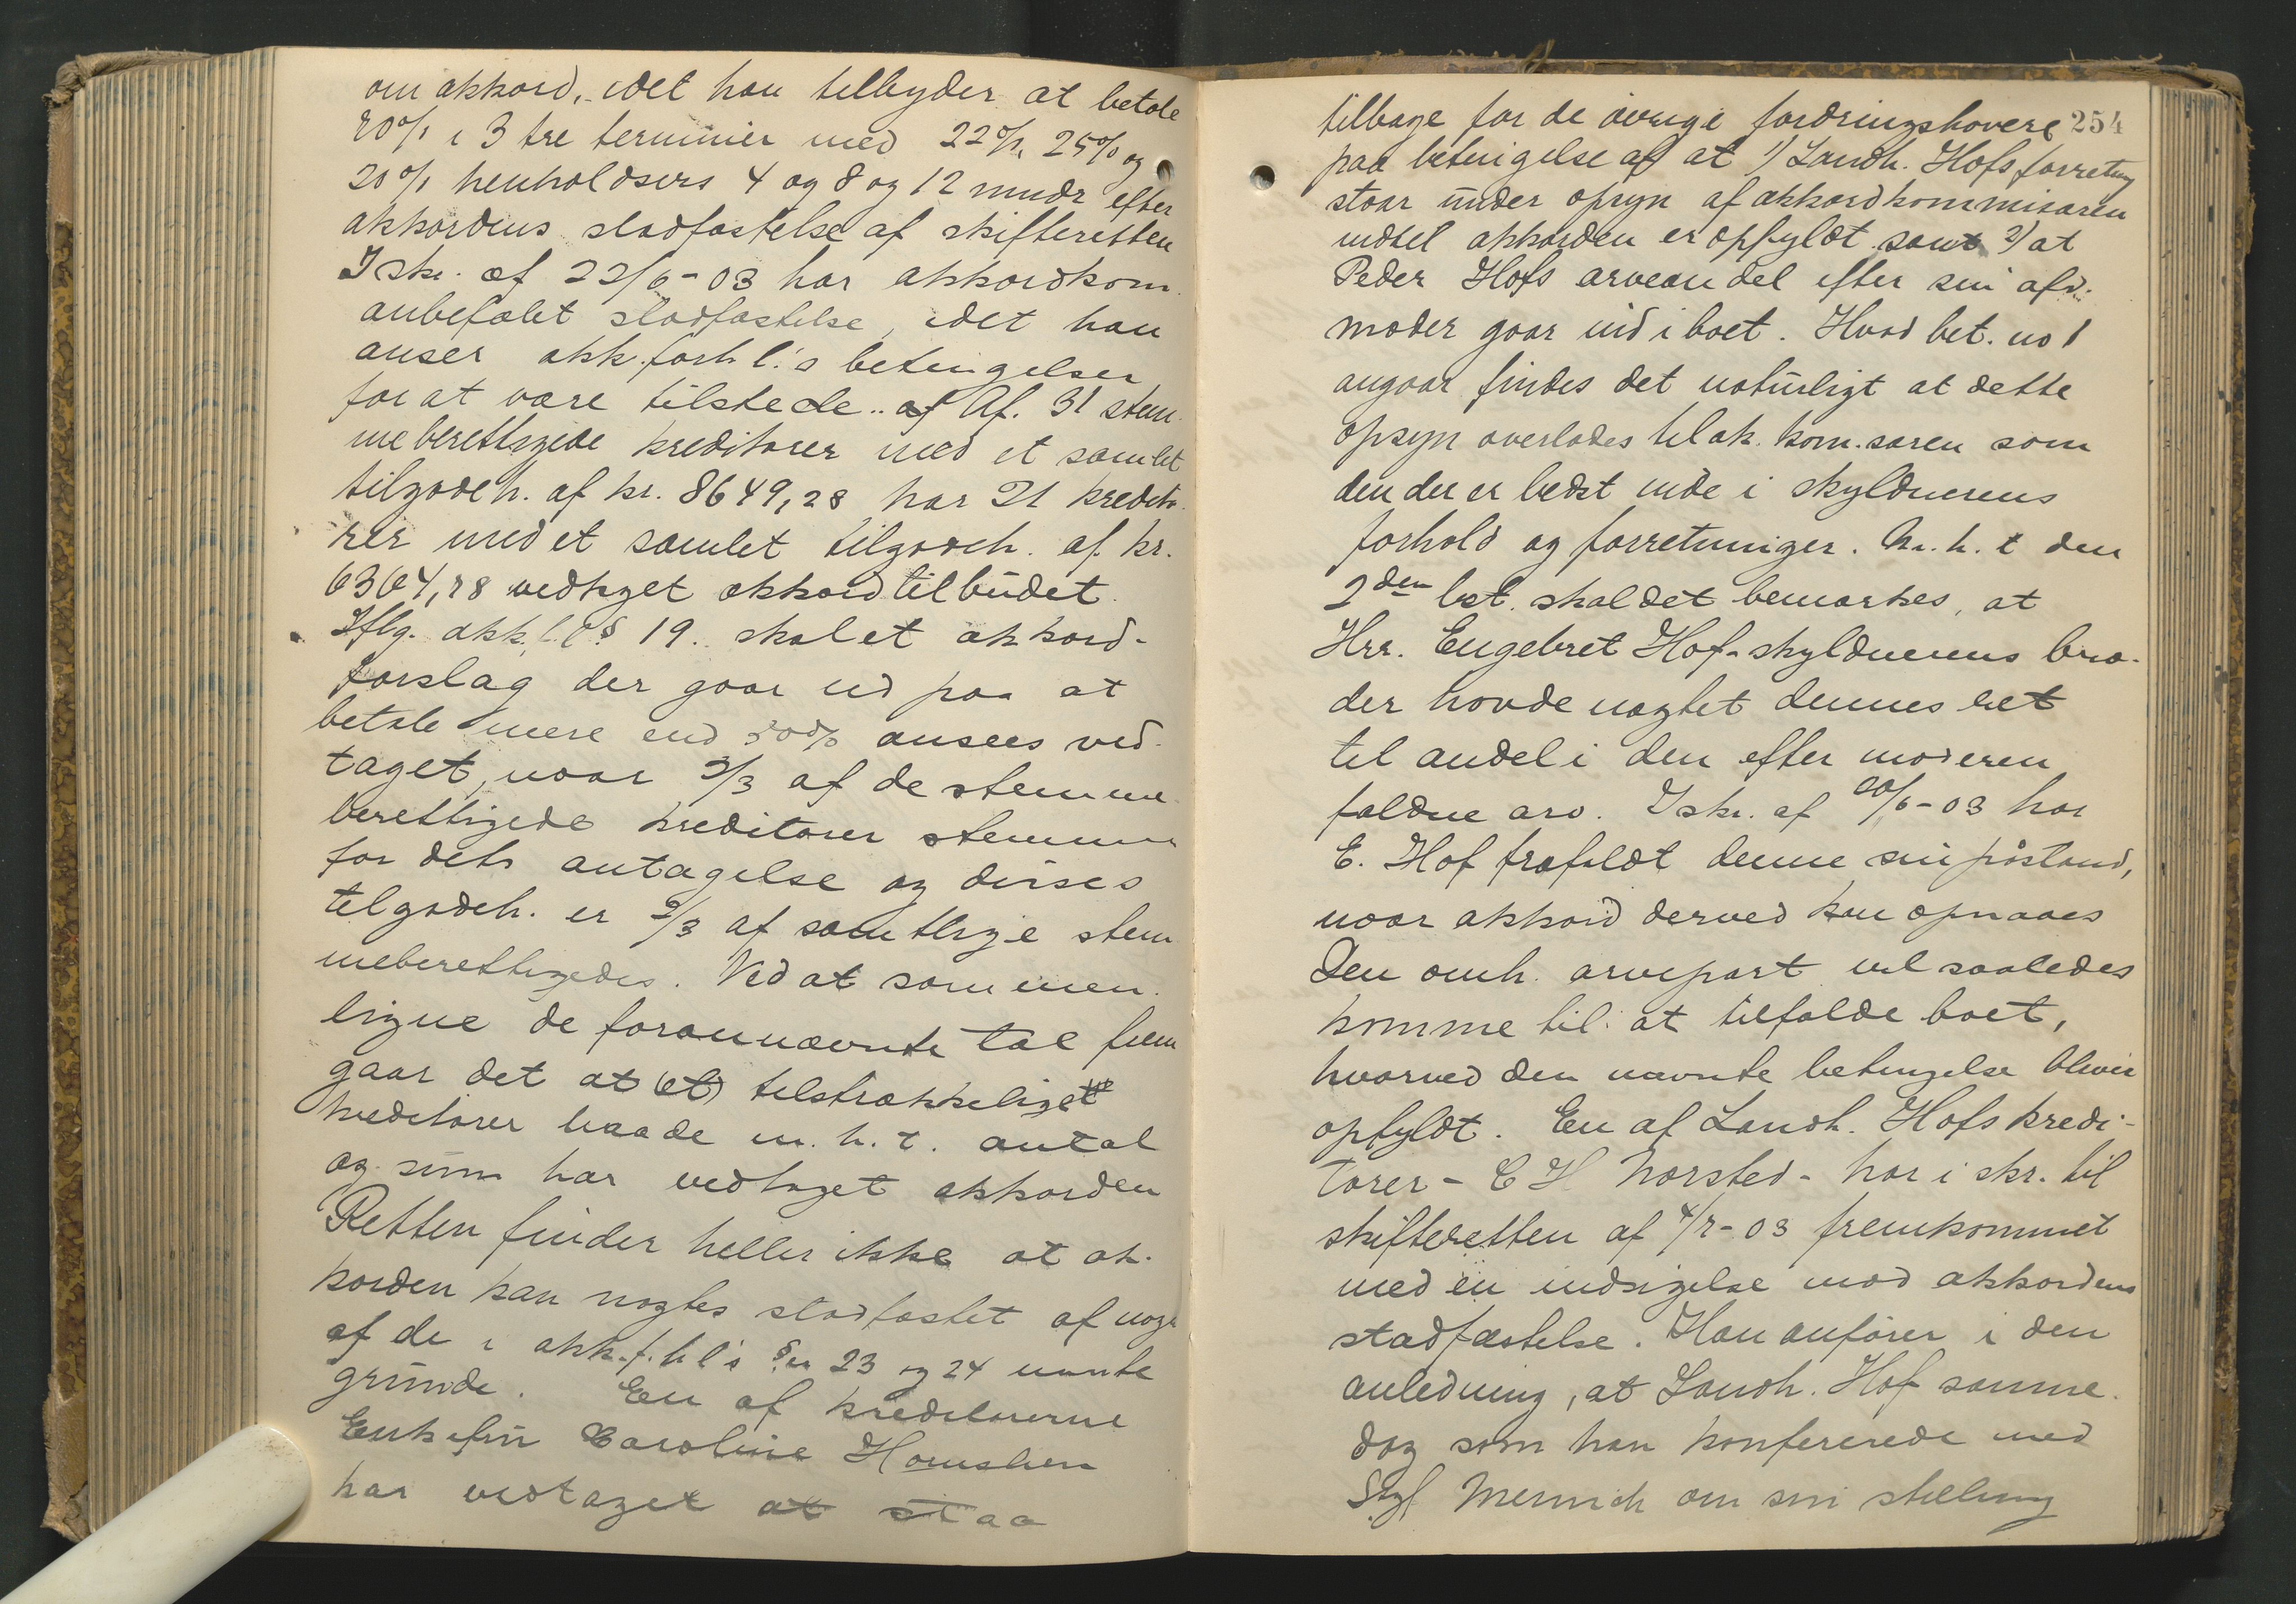 om akkord, idet han tilbyder at betale
70% i 3 tre terminer med 22%, 25% og
20% henholdsvis 4 og 8 og 12 mndr efter
akkordens stadfæstelse af skifteretten
I skr. af 22/6-03 har akkordkom.
anbefalet stadfæstelse, idet han
anser akk.forh.l.'s betingelser
for at være tilstede. Af 31 stem-
meberettigede kreditorer med et samlet
tilgodeh. af kr. 8649,28 har 21 kredito-
rer med et samlet tilgodeh. af kr.
6364,78 vedtaget akkordtilbudet.
Iflg. akk.l. § 19. skal et akkord-
forslag der gaar ud paa at
betale mere end 50% ansees ved-
taget, naar 2/3 af de stemme-
berettigede kreditorer stemmer
for dets antagelse og disses
tilgodeh. er 2/3 af samtlige stem-
meberettigedes. Ved at sammen-
ligne de forannævnte tal frem
gaar det at (et) tilstrækkeligt
kreditorer baade m. h. t. antal
og sum har vedtaget akkorden
Retten finder heller ikke at ak-
korden kan nægtes stadfæstet af nogen
af de i akk.f.h.l's §er 23 og 24 nævnte
grunde. En af kreditorerne
Enkefru Caroline
har vedtaget at staa
254
tilbage for de øvrige fordringshavere
paa betingelse af at 1) Landh. Hofs forretning
staar under opsyn af akkordkommisæren
indtil akkorden er opfyldt samt 2) at
Peder Hofs arveandel efter sin afd.
moder gaar ind i boet. Hvad bet. no 1
angaar findes det naturligt at dette
opsyn overlades til ak. kom.særen som
den der er bedst inde i skyldnerens
forhold og forretninger. M. h. t den
2den bet. skal det bemærkes, at
Hrr. Engebret Hof - skyldnerens bro-
der havde nægtet dennes ret
til andel i den efter moderen
faldne arv. I skr. af 20/6-03 har
E. Hof frafaldt denne sin påstand,
naar akkord derved kan opnaaes
Den omh. arvepart vil saaledes
komme til at tilfalde boet,
hvorved den nævnte betingelse bliver
opfyldt. En af Landh. Hofs kredi-
torer - C H Norsted - har i skr. til
skifteretten af 4/7-03 fremkommet
med en indsigelse mod akkordens
stadfæstelse. Han anfører i den
anledning, at Landh. Hof samme
dag som han konfererede med
Sagf Mernich om sin stilling